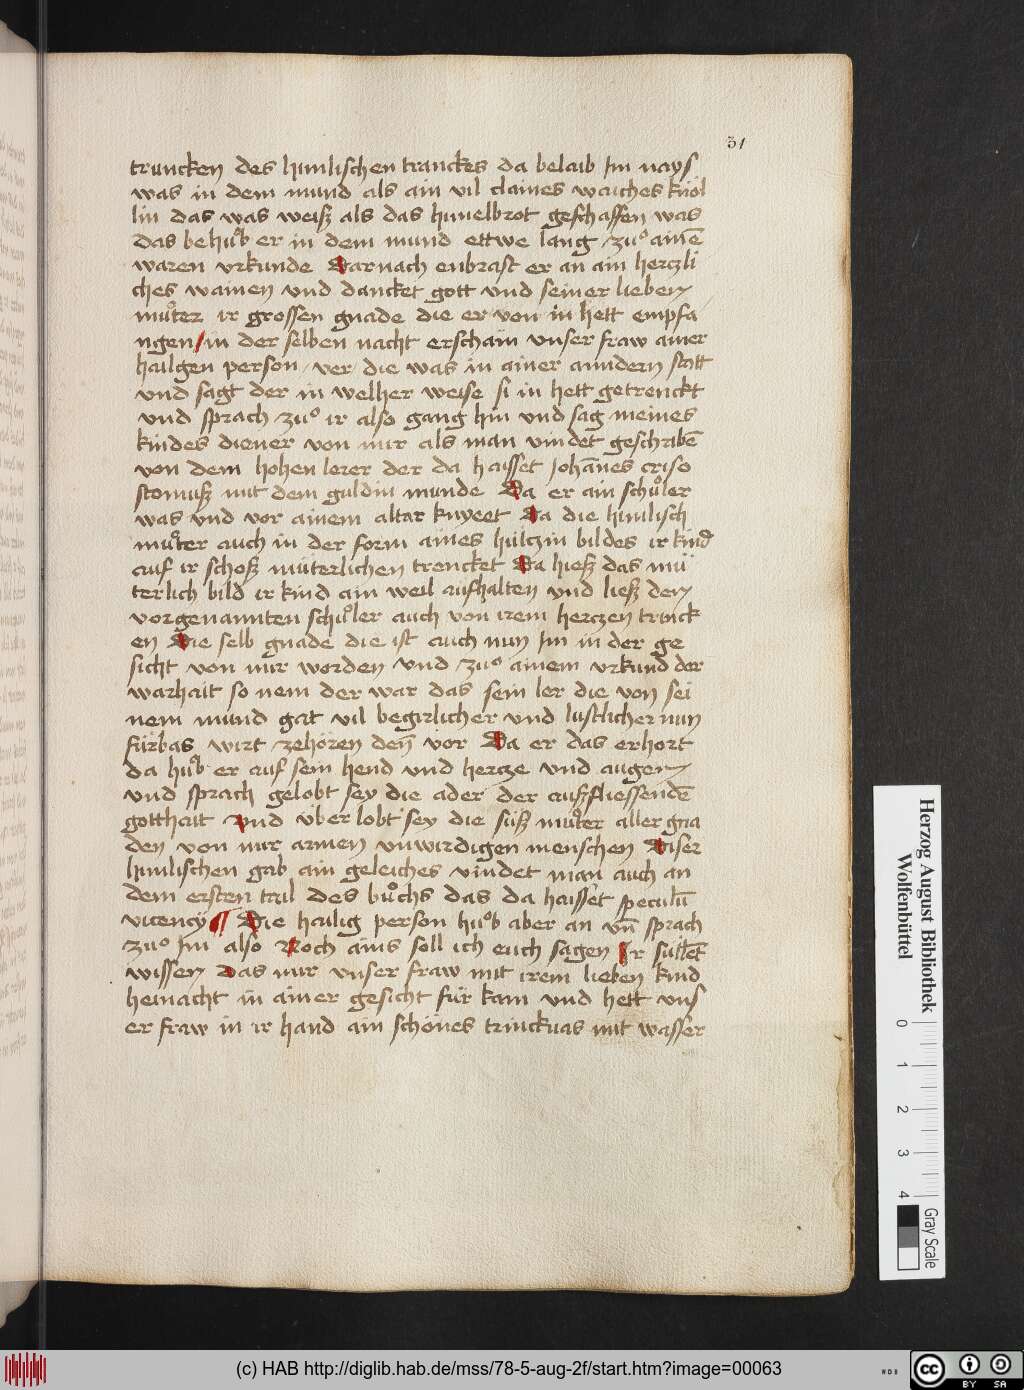 31
truncken des himlischen tranckes da belaib Im nays
was in dem mund als ain vil claines waiches knöl
lin das was weiß als das himelbrot geschaffen was
das behůb er in dem mund ettwe lang / zuo ainē
waren vrkunde Darnach enbrast er an ain herczli
ches wainen vnd dancket gott vnd seiner lieben
můter ir grossen gnade die er von in hett empfa
ngen / in der selben nacht erschain vnser fraw ainer
hailgen person / ver / die was in ainer anndern statt
vnd sagt der in welher weise si in hett getrenckt
vnd sprach zuo ir also gang hin vnd sag meines
kindes diener von mir als man vindet geschribē
von dem hohen lerer der da haisset Johānes criso
stomuß mit dem guldin munde Da er ain schůler
was vnd vor ainem altar knyeet Da die himlisch
můter auch in der form aines hültzin bildes ir kind
auf ir schoß müterlichen trencket Da hieß das mü
terlich bild ir kind ain weil aufhalten vnd ließ den
vorgenannten schůler auch von irem herczen trinck
en Die selb gnade die ist auch nun Im in der ge
sicht von mir worden vnd zuo ainem vrkund der
warhait so nem der war das sein ler die von sei
nem mund gat vil begirlicher vnd lustlicher nun
fürbas wirt zehören deñ vor Da er das erhort
da hůb er auf sein hend vnd hercze vnd augen
vnd sprach gelobt sey die ader der außfliessendē
gotthait Vnd über lobt sey die süß můter aller gna
den von mir armen vnwirdigen menschen Diser
himlischen gab ain geleiches vindet man auch an
dem ersten tail des bůchs das da haisset speculū
vicencÿ ¶ Die hailig person hůb aber an vñ sprach
zuo Im also Noch ains soll ich euch sagen Ir sullēt
wissen Das mir vnser fraw mit irem lieben kind
heinacht in ainer gesicht für kam vnd hett vns
er fraw in ir hand ain schönes trinckuas mit wasser
Herzog August Bibliothek
Wolfenbüttel
0 1 2 3 4
Gray Scale
(c) HAB http://diglib.hab.de/mss/78-5-aug-2f/start.htm?image=00063
cc BY SA